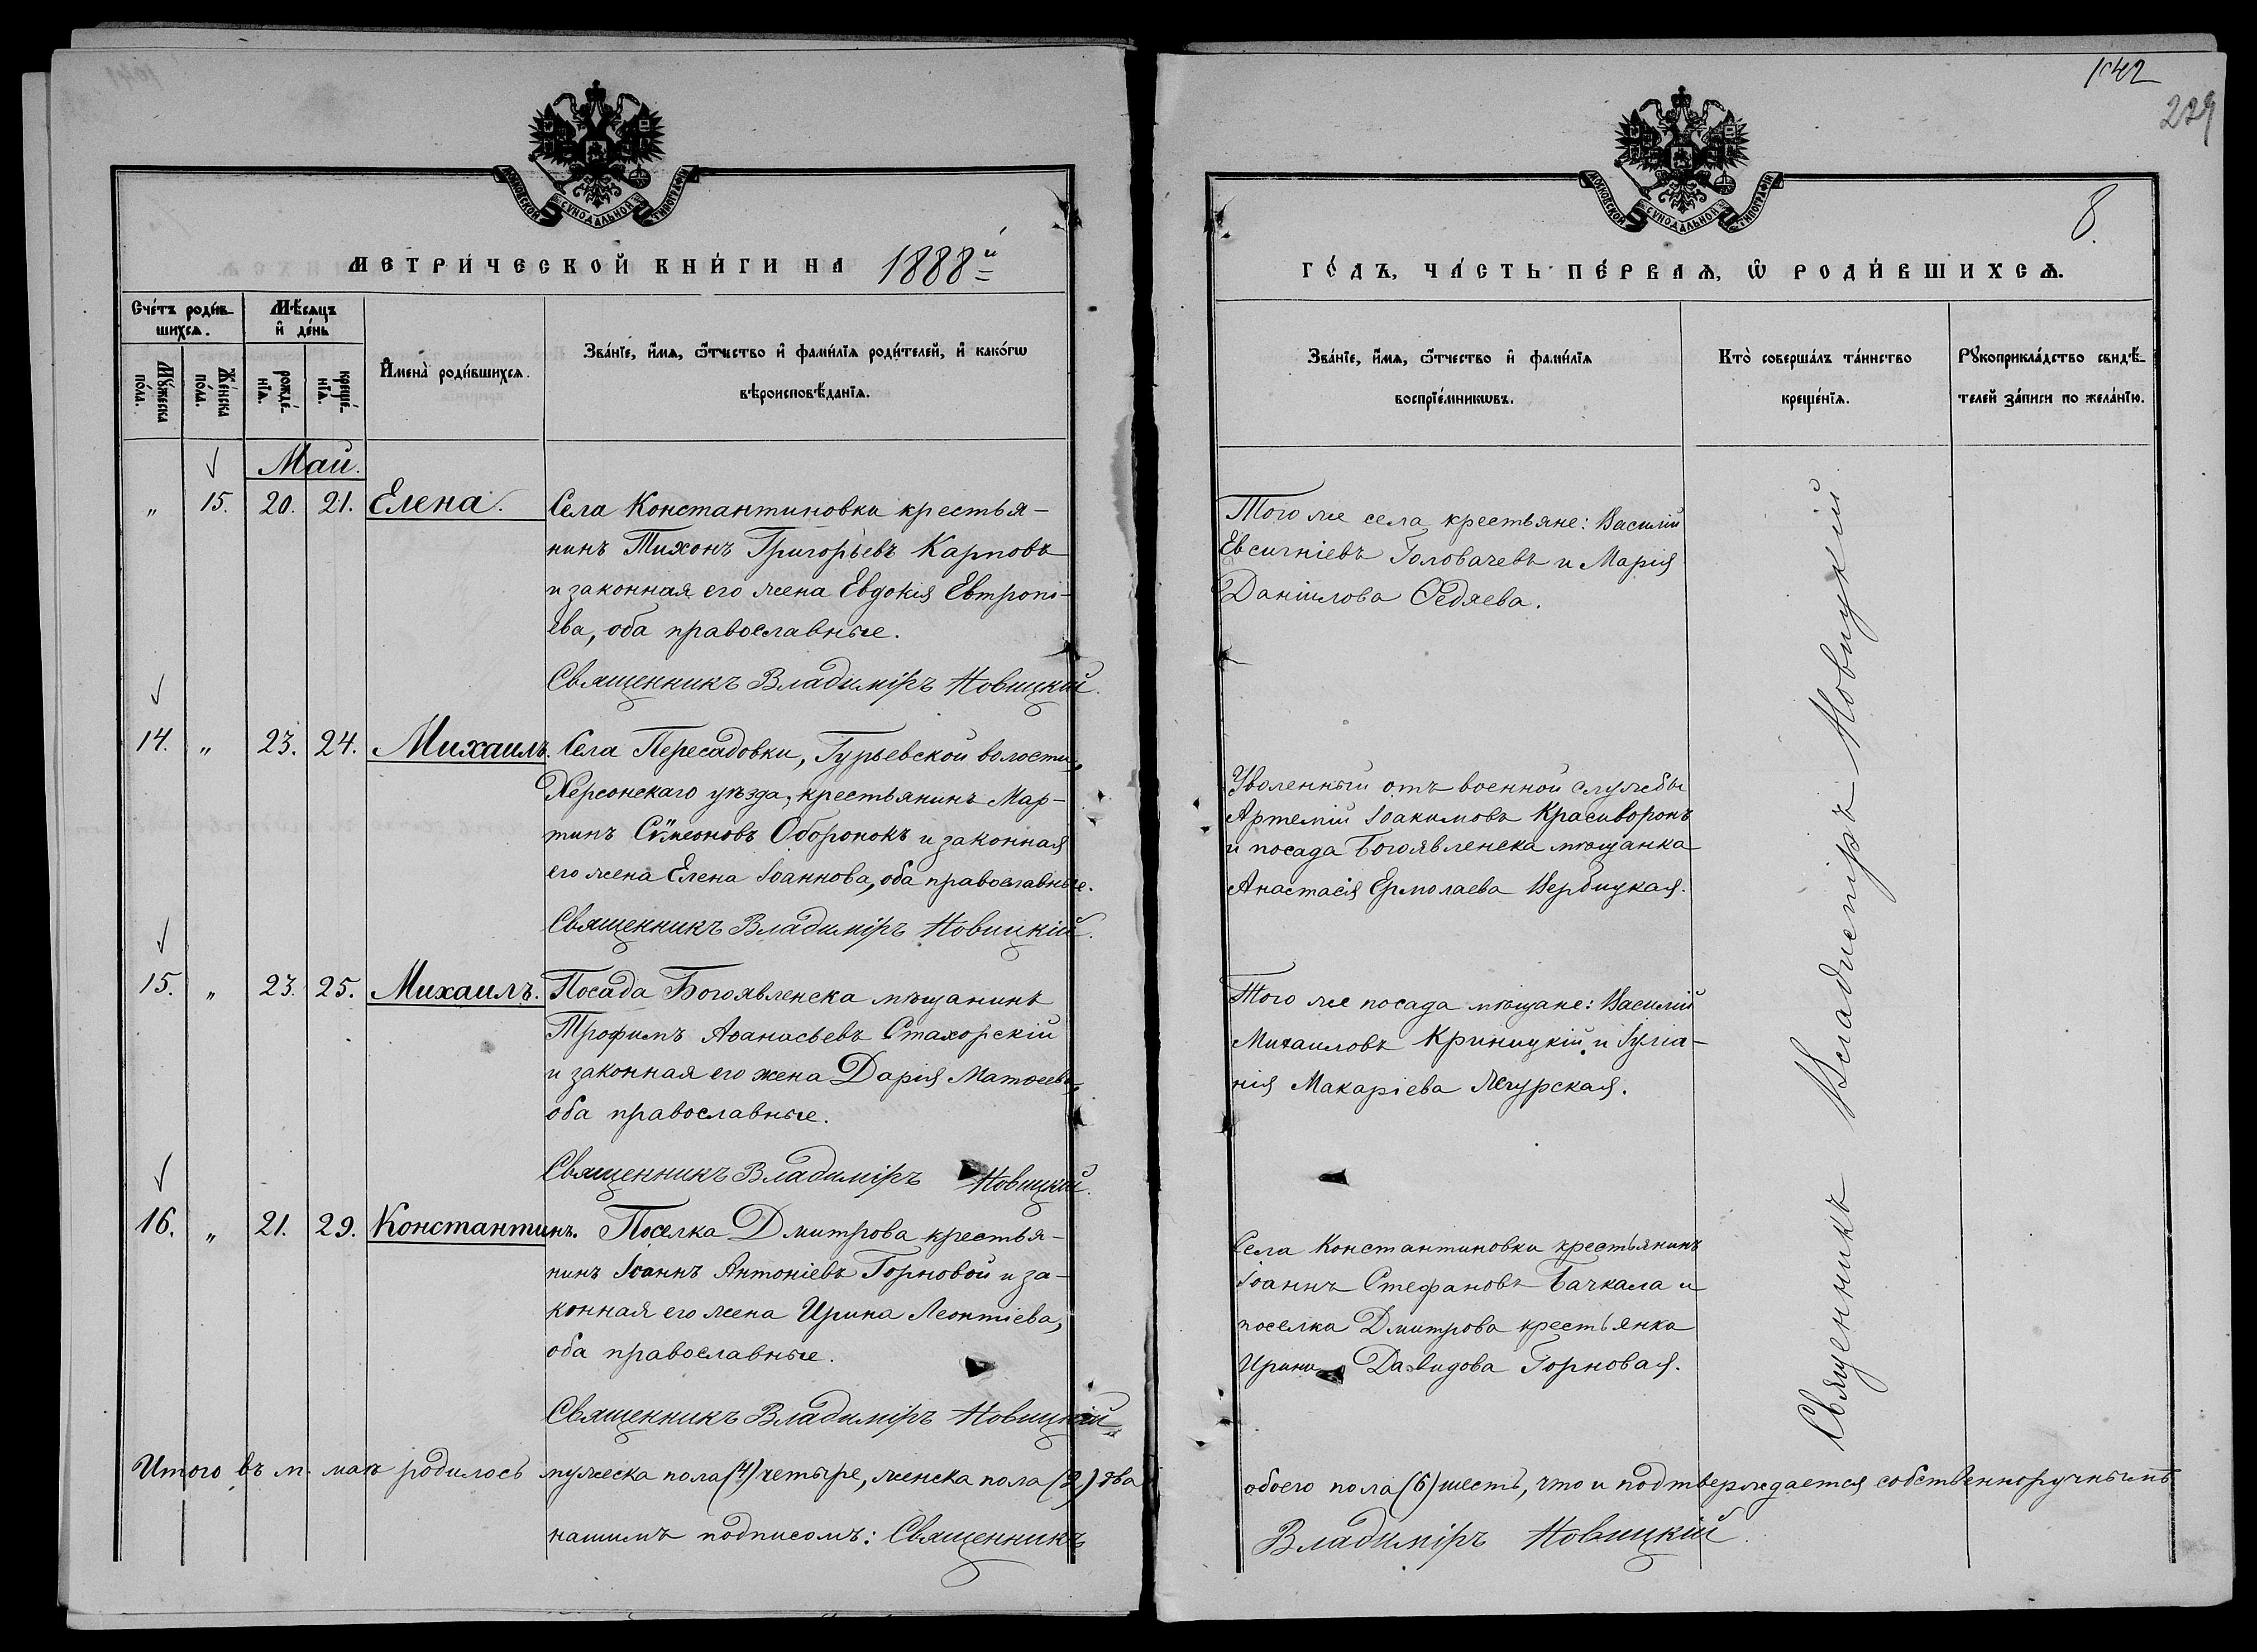 1042
229
8.
МОСКОВСКОЙ СУНОДАЛЬНОЙ ТИПОГРАФІИ
МЕТРИ́ЧЕСКОЙ КНИ́ГИ НА 1888й
Сче́тъ роди́в-
шихсѧ.
Мѣ́сѧцъ
и҆ де́нь
Мꙋ́жеска
по́ла.
Же́нска
по́ла.
рожде́-
нїѧ.
креще́-
нїѧ.
И҆мена̀ роди́вшихсѧ.
Зва́нїе, и҆́мѧ, ѻ҆́тчество и҆ фами́лїѧ роди́телей, и҆ како́гѡ
вѣроисповѣ́данїѧ.
Май.
„ 15. 20. 21. Елена. Села Константиновки крестья-
нинъ Тихонъ Григорьевъ Карповъ
и законная его жена Евдокія Евтропі-
ева, оба православные.
Священникъ Владиміръ Новицкій.
14. „ 23. 24. Михаилъ. Села Пересадовки, Гурьевской волости,
Херсонскаго уѣзда, крестьянинъ Мар-
тинъ Сѵмеоновъ Оборонокъ и законная
его жена Елена Іоаннова, оба православные.
Священникъ Владиміръ Новицкій.
15. „ 23. 25. Михаилъ. Посада Богоявленска мѣщанинъ
Трофимъ Аѳанасьевъ Стахорскій
и законная его жена Дарія Матѳеева,
оба православные.
Священникъ Владиміръ Новицкій.
16. „ 21. 29. Константинъ. Поселка Дмитрова крестья-
нинъ Іоаннъ Антоніевъ Горновой и за-
конная его жена Ирина Леонтіева,
оба православные.
Священникъ Владиміръ Новицкій.
Итого въ м. маѣ родилось мужеска пола (4) четыре, женска пола (2) два
нашимъ подписомъ: Священникъ
МОСКОВСКОЙ СУНОДАЛЬНОЙ ТИПОГРАФІИ
ГО́ДЪ, ЧА́СТЬ ПЕ́РВАѦ, Ѡ҆ РОДИ́ВШИХСѦ.
Зва́нїе, и҆́мѧ, ѻ҆́тчество и҆ фами́лїѧ
воспрїе́мникѡвъ.
Кто̀ соверша́лъ та́инство
креще́нїѧ.
Рꙋкоприкла́дство свидѣ́-
телей за́писи по жела́нїю.
Того же села крестьяне: Василій
Евсигніевъ Головачевъ и Марія
Даніилова Ѳедяева.
Уволенный отъ военной службы
Артемій Іоакимовъ Красиворонъ
и посада Богоявленска мѣщанка
Анастасія Ермолаева Вербицкая.
Того же посада мѣщане: Василій
Михаиловъ Криницкій и Іуліа-
нія Макаріева
Села Константиновки крестьянинъ
Іоаннъ Стефановъ Бачкала и
поселка Дмитрова крестьянка
Ирина Давидова Горновая.
Священникъ Владиміръ Новицкій
обоего пола (6) шесть, что и подтверждается собственноручнымъ
Владиміръ Новицкій.